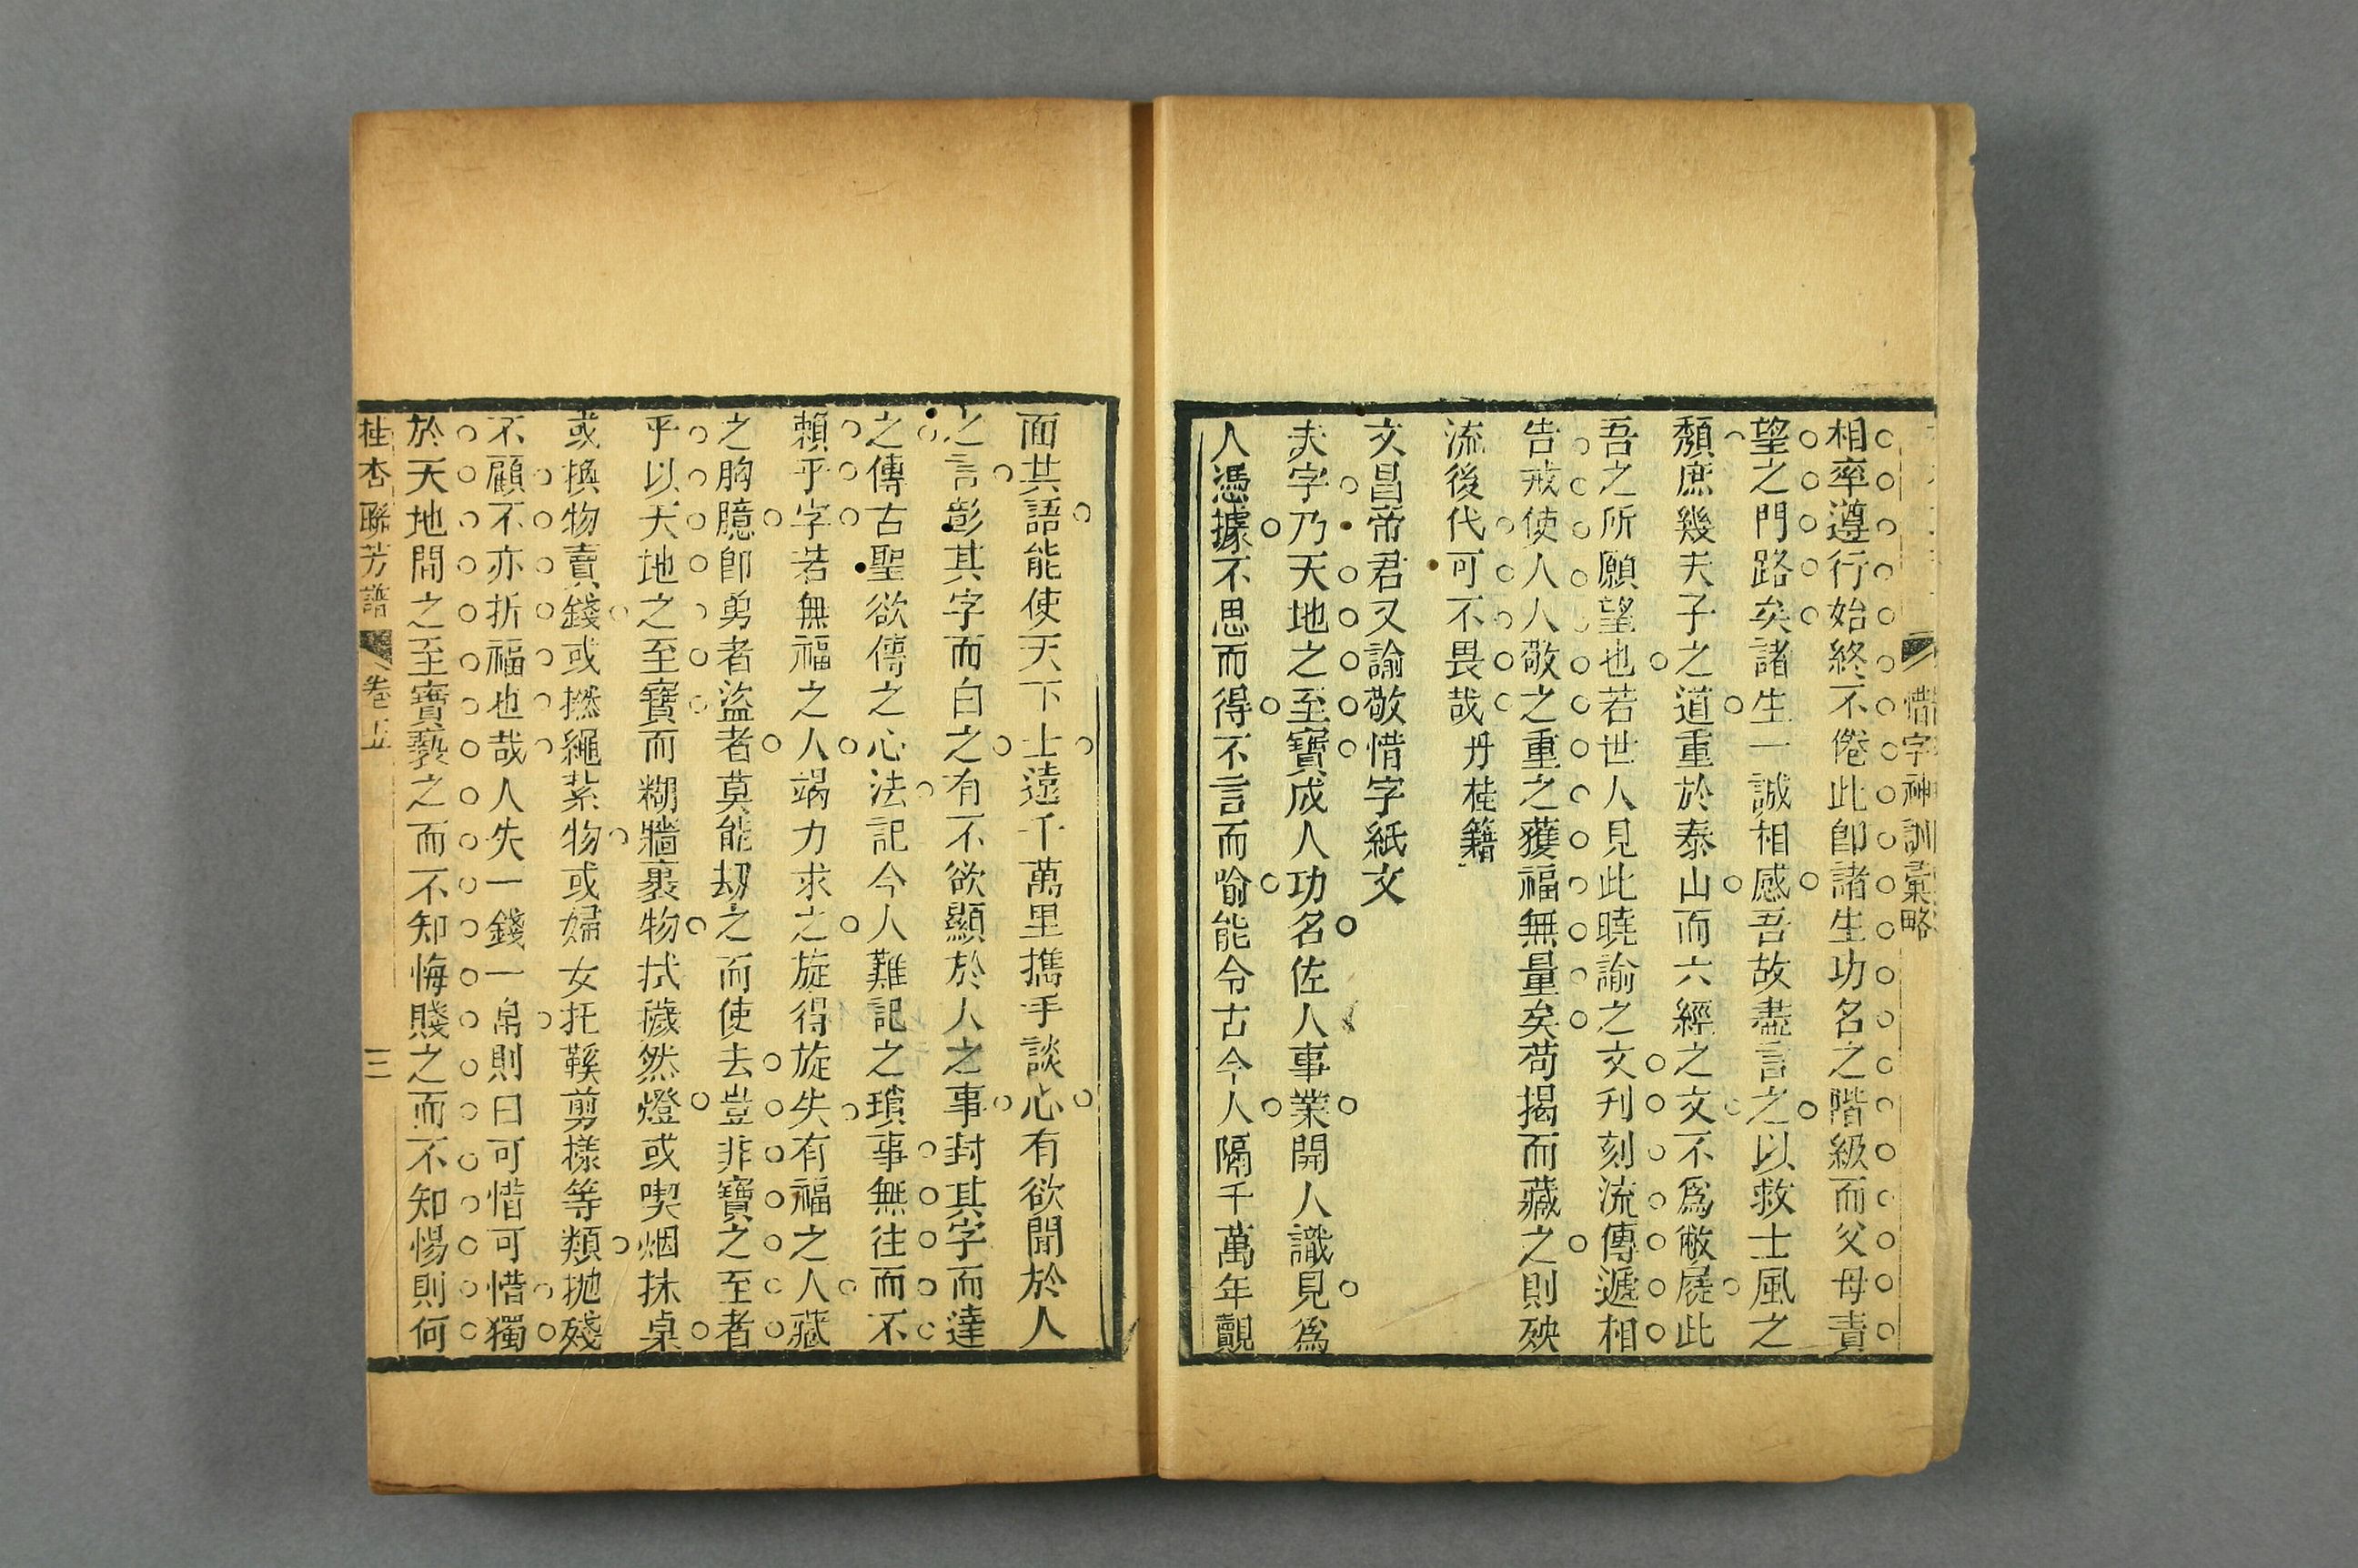 惜字神訓彙略
相率遵行始終不倦此卽諸生功名之階級而父母責
望之門路矣諸生一誠相感吾故盡言之以救士風之
頽庶幾夫子之道重於泰山而六經之文不爲敝屣此
吾之所願望也若世人見此曉諭之文刋刻流傳遞相
告戒使人人敬之重之獲福無量矣苟揭而藏之則殃
流後代可不畏哉丹桂籍
文昌帝君又諭敬惜字紙文
夫字乃天地之至寶成人功名佐人事業開人識見爲
人憑據不思而得不言而喻能令古今人隔千萬年覿
面共語能使天下士遠千萬里擕手談心有欲聞於人
之言彰其字而白之有不欲顯於人之事封其字而達
之傳古聖欲傳之心法記今人難記之瑣事無往而不
賴乎字若無福之人竭力求之旋得旋失有福之人藏
之胸臆卽勇者盜者莫能刼之而使去豈非寶之至者
乎以天地之至寶而糊牆裹物拭穢然燈或喫烟抹桌
或換物賣錢或撚繩紮物或婦女托鞵剪樣等類抛殘
不顧不亦折福也哉人失一錢一帛則曰可惜可惜獨
於天地間之至寶褻之而不知悔賤之而不知惕則何
桂杏聯芳譜 卷五 三